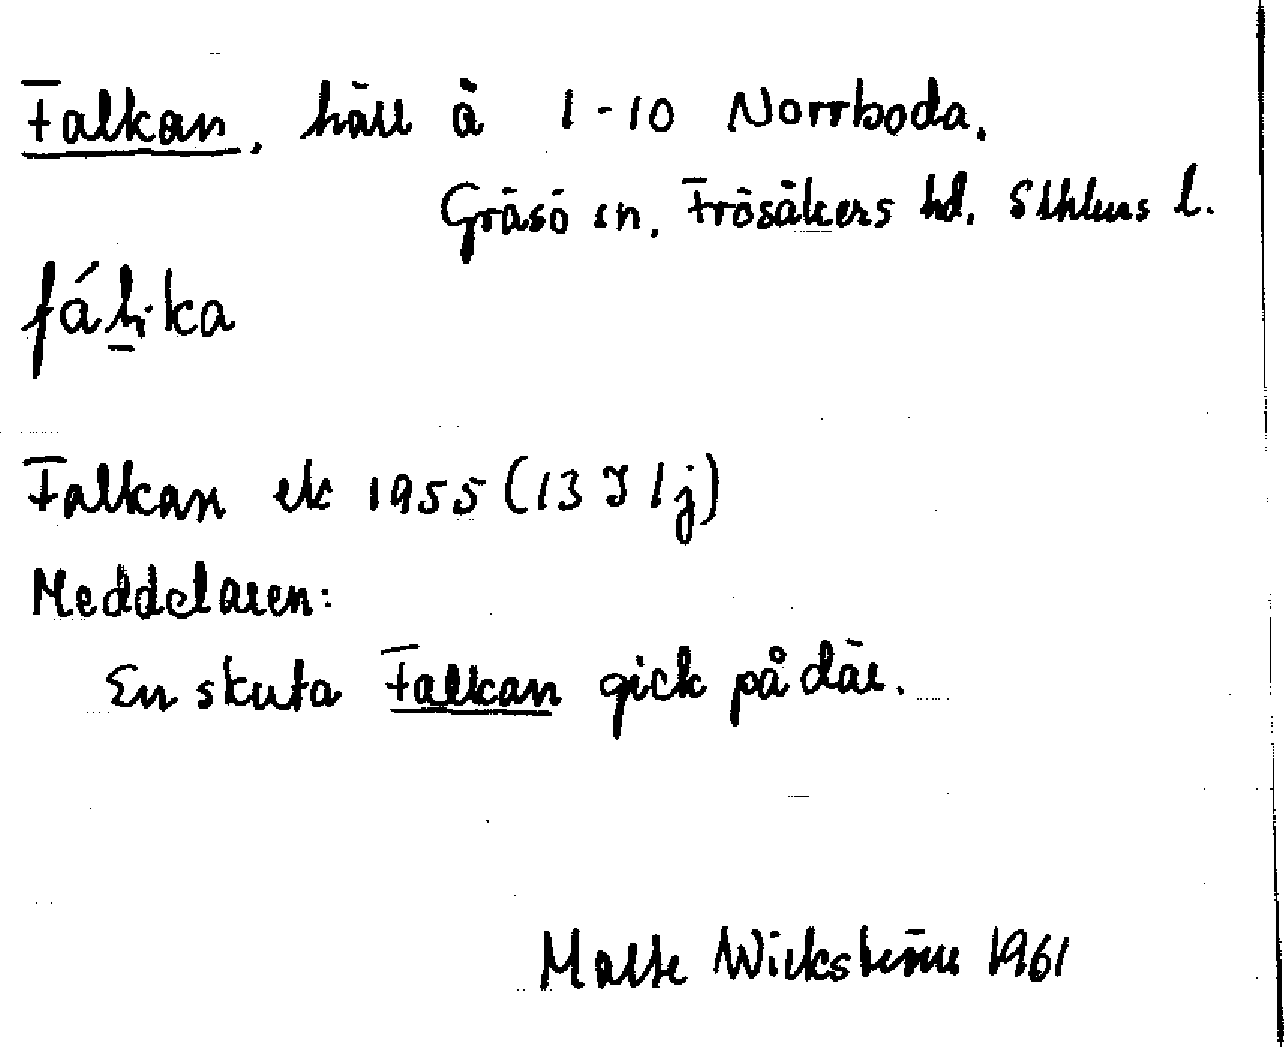 Falkan, häll å 1-10 Norrboda.
Gräsö sn, Frösåkers hd. Sthlms l.
Falkan ek 1955 (13 I 1 j)
Meddelaren:
En skuta Falkan gick på där.
Malte Wickström 1961